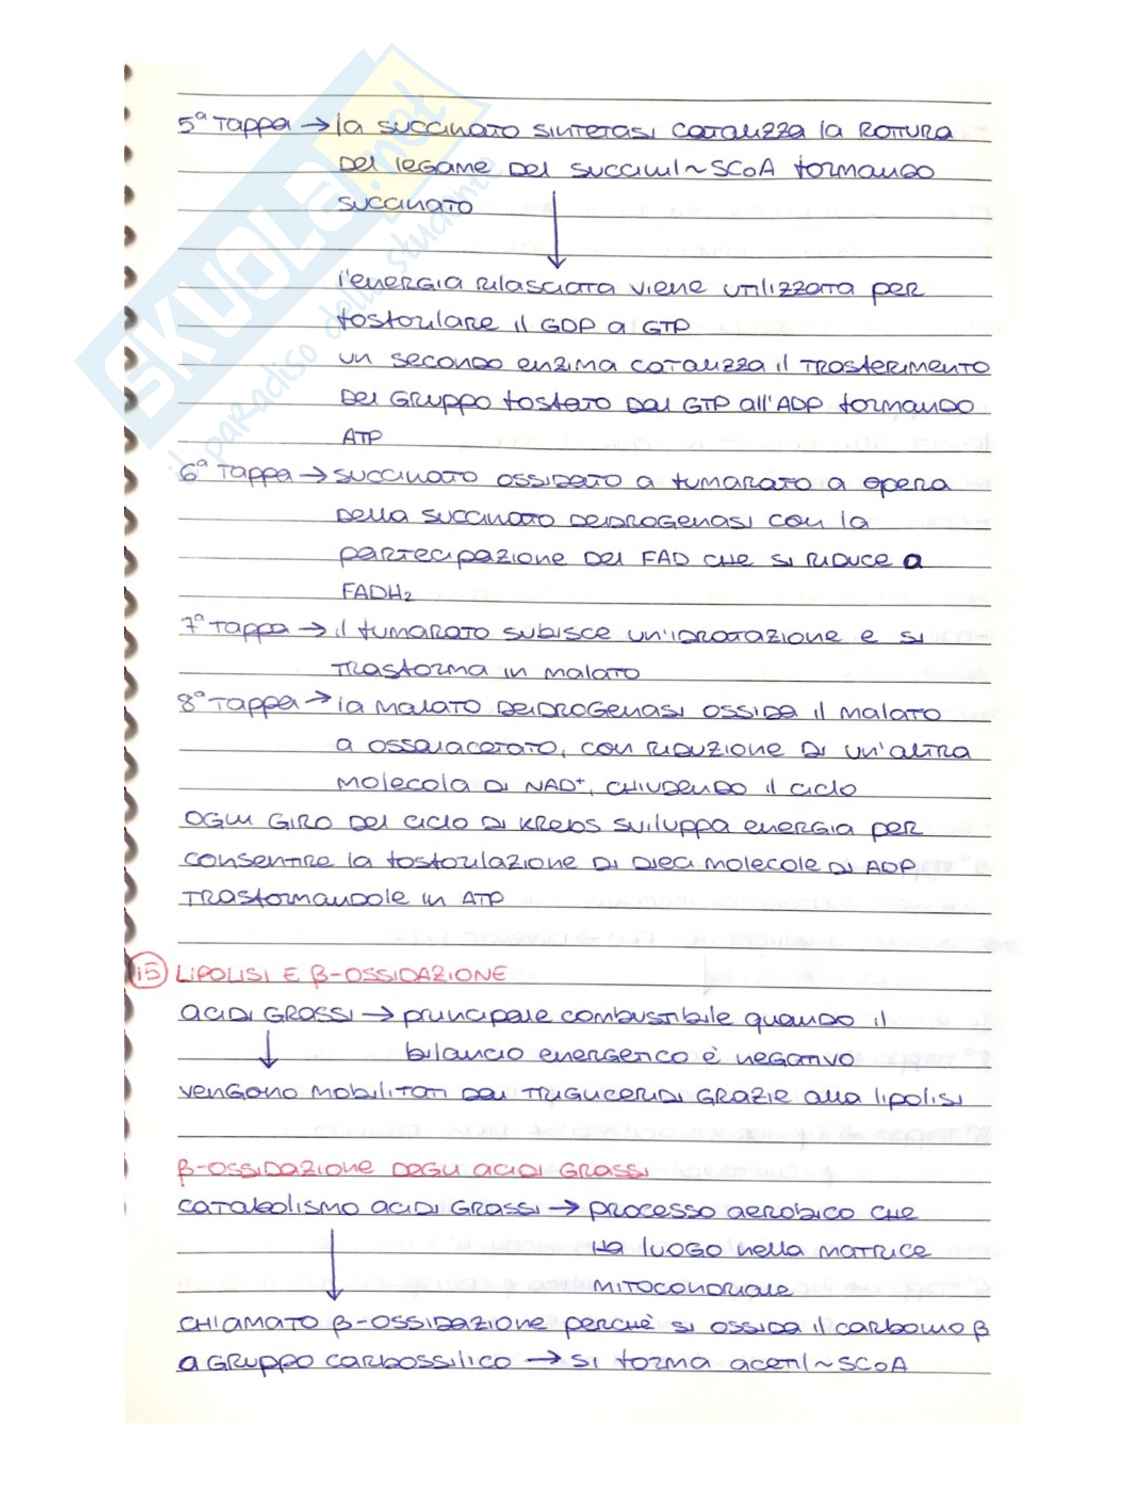 5ª Tappa → la succinato sintetasi catalizza la rottura
del legame del succinil~SCoA formando
succinato
↓
l'energia rilasciata viene utilizzata per
fosforilare il GDP a GTP
un secondo enzima catalizza il trasferimento
del gruppo fosfato dal GTP all'ADP formando
ATP
6ª Tappa → succinato ossidato a fumarato a opera
della succinato deidrogenasi con la
partecipazione del FAD che si riduce a
FADH₂
7ª Tappa → il fumarato subisce un'idratazione e si
trasforma in malato
8ª Tappa → la malato deidrogenasi ossida il malato
a ossalacetato, con riduzione di un'altra
molecola di NAD⁺, chiudendo il ciclo
Ogni giro del ciclo di Krebs sviluppa energia per
consentire la fosforilazione di dieci molecole di ADP
trasformandole in ATP
15 LIPOLISI E β-OSSIDAZIONE
Acidi grassi → principale combustibile quando il
bilancio energetico è negativo
↓
vengono mobilitati dai trigliceridi grazie alla lipolisi
β-OSSIDAZIONE DEGLI ACIDI GRASSI
Catabolismo acidi grassi → processo aerobico che
ha luogo nella matrice
mitocondriale
↓
chiamato β-ossidazione perchè si ossida il carbonio β
a gruppo carbossilico → si forma acetil~SCoA
SKUOLA.net
il paradiso dello studente